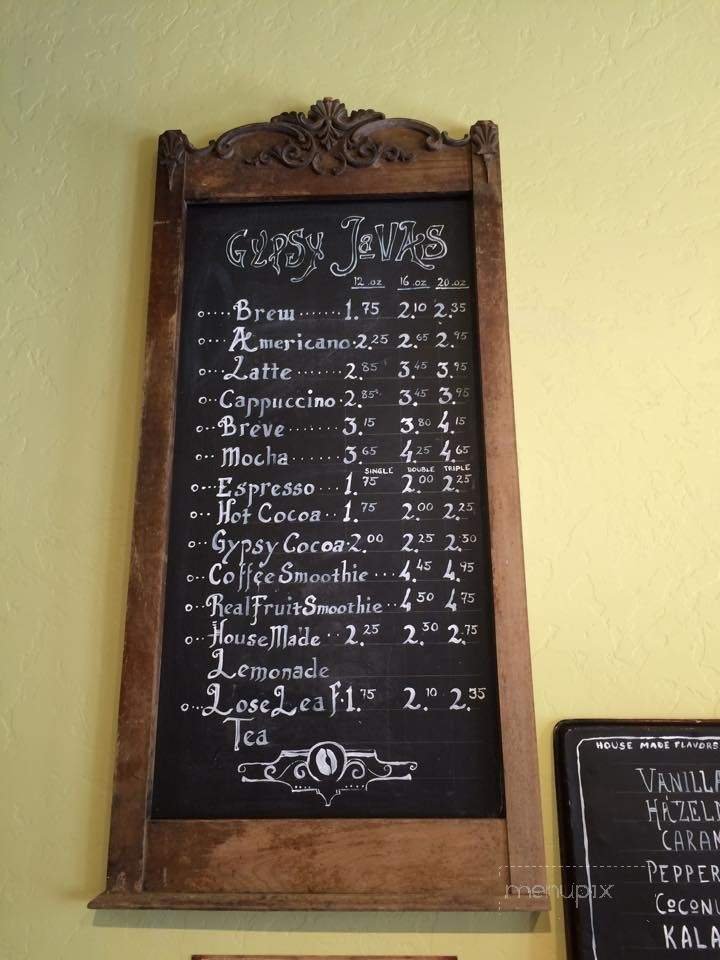 Gypsy JaVAs
12 oz 16 oz 20 oz
Brew 1.75 2.10 2.35
Americano 2.25 2.65 2.95
Latte 2.85 3.45 3.95
Cappuccino 2.85 3.45 3.95
Brévé 3.15 3.80 4.15
Mocha 3.65 4.25 4.65
SINGLE DOUBLE TRIPLE
Espresso 1.75 2.00 2.25
Hot Cocoa 1.75 2.00 2.25
Gypsy Cocoa 2.00 2.25 2.50
Coffee Smoothie 4.45 4.95
Real Fruit Smoothie 4.50 4.75
House Made 2.25 2.50 2.75
Lemonade
Lose Leaf 1.75 2.10 2.35
Tea
HOUSE MADE FLAVORS
VANILLA
HAZEL
CARAM
PEPPER
COCONU
KALA
menupix